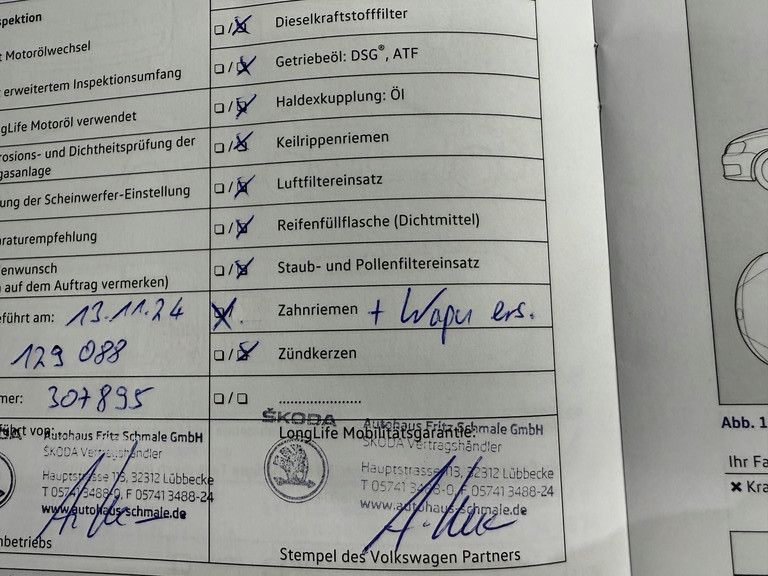 spektion
Dieselkraftstofffilter
t Motorölwechsel
Getriebeöl: DSG®, ATF
erweitertem Inspektionsumfang
Haldexkupplung: Öl
ngLife Motoröl verwendet
Keilrippenriemen
rosions- und Dichtheitsprüfung der
gasanlage
Luftfiltereinsatz
ung der Scheinwerfer-Einstellung
Reifenfüllflasche (Dichtmittel)
araturempfehlung
Staub- und Pollenfiltereinsatz
enwunsch
auf dem Auftrag vermerken)
eführt am: 13.11.24
Zahnriemen + Wapu ers.
129 088
Zündkerzen
mer: 307895
.....................
führt von:
Autohaus Fritz Schmale GmbH
ŠKODA Vertragshändler
Hauptstrasse 113, 32312 Lübbecke
T 05741 3488-0, F 05741 3488-24
www.autohaus-schmale.de
nbetriebs
ŠKODA
LongLife Mobilitätsgarantie:
Autohaus Fritz Schmale GmbH
ŠKODA Vertragshändler
Hauptstrasse 113, 32312 Lübbecke
T 05741 3488-0, F 05741 3488-24
www.autohaus-schmale.de
Stempel des Volkswagen Partners
Abb. 1
Ihr Fa
✖ Kra